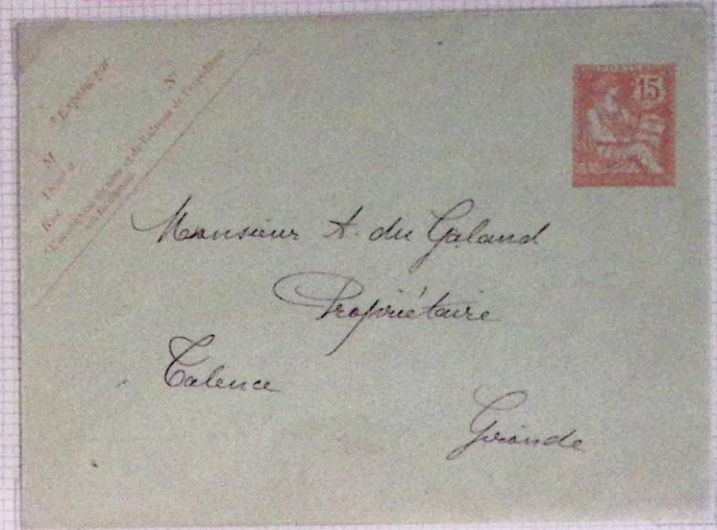 Expédié par
M N
Demt à
Rue
15
Monsieur A. du Galand
Propriétaire
Talence
Gironde